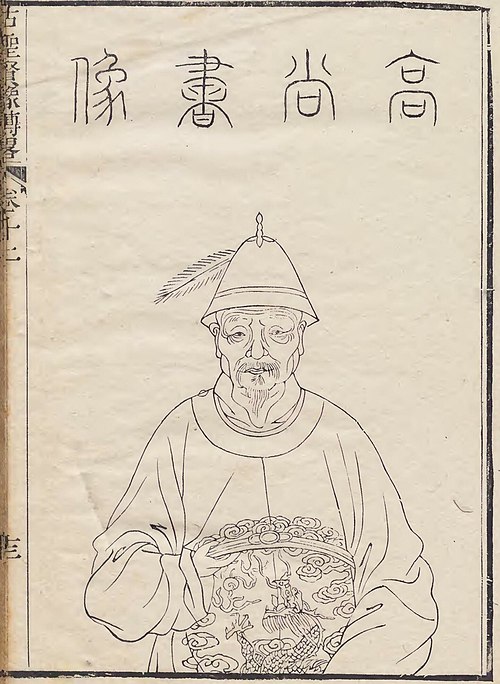 高尚書像
古聖賢像傳畧
卷十二